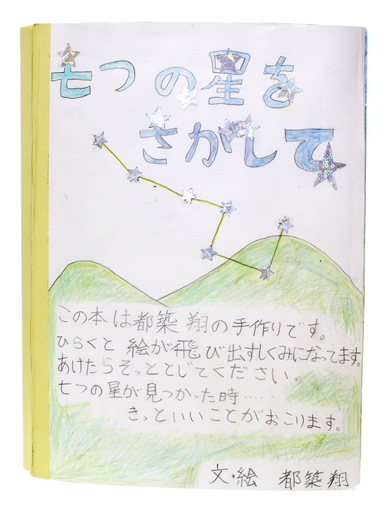 七つの星を
さがして
この本は都築 翔の手作りです。
ひらくと 絵が飛び出すしくみになってます。
あけたらそっととじてください。
七つの星が見つかった時……
きっといいことがおこります。
文・絵 都築 翔